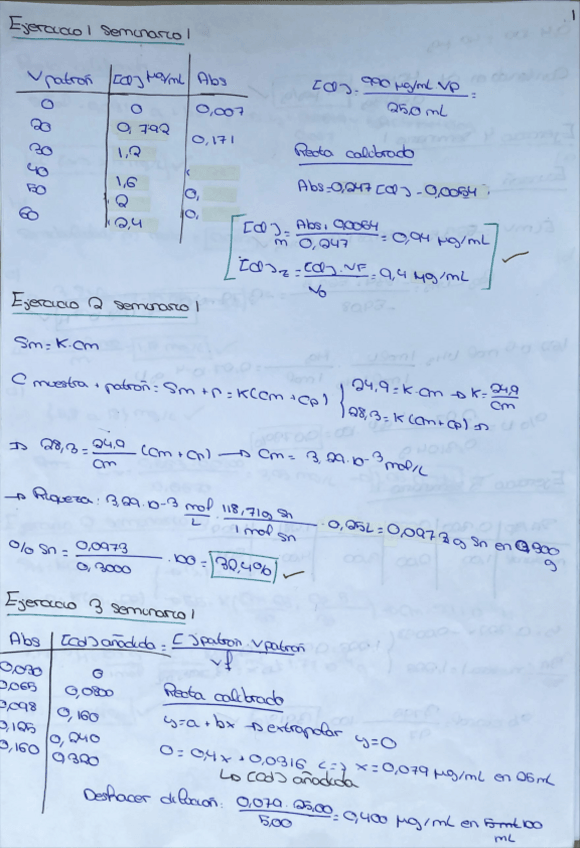 1
Ejercicio 1 seminario 1
Vpatrón [Cd] µg/mL Abs
0 0 0,007
20 0,792 0,171
30 1,2
40 1,6
50 2 0,
60 2,4 0,
[Cd] = 990 µg/mL · VP / 25,0 mL =
Recta calibrado
Abs = 0,247 [Cd] - 0,0064
[Cd]m = Abs + 0,0064 / 0,247 = 0,94 µg/mL
[Cd]z = [Cd] · VF / Vo = 9,4 µg/mL ✓
Ejercicio 2 seminario 1
Sm = K·Cm
C muestra + patrón: Sm+p = K(Cm + Cp) } 24,9 = K·Cm → K = 24,9 / Cm
28,3 = K(Cm+Cp) ⇒
⇒ 28,3 = 24,9 / Cm (Cm + Cp) → Cm = 3,29·10-3 mol/L
→ Riqueza: 3,29·10-3 mol / L · 118,71 g Sn / 1 mol Sn · 0,25L = 0,0973 g Sn en 0,300 g
% Sn = 0,0973 / 0,3000 · 100 = 32,4% ✓
Ejercicio 3 seminario 1
Abs [Cd] añadida = [ ]patrón · Vpatrón / Vf
0,030 0
0,065 0,0800
0,098 0,160
0,125 0,240
0,160 0,320
Recta calibrado
y = a + bx → extrapolar y=0
0 = 0,4x + 0,0316 <=> x = 0,079 µg/mL en 25 mL
↳ [Cd] añadida
Deshacer dilución: 0,079 · 25,00 / 5,00 = 0,400 µg/mL en 100 mL